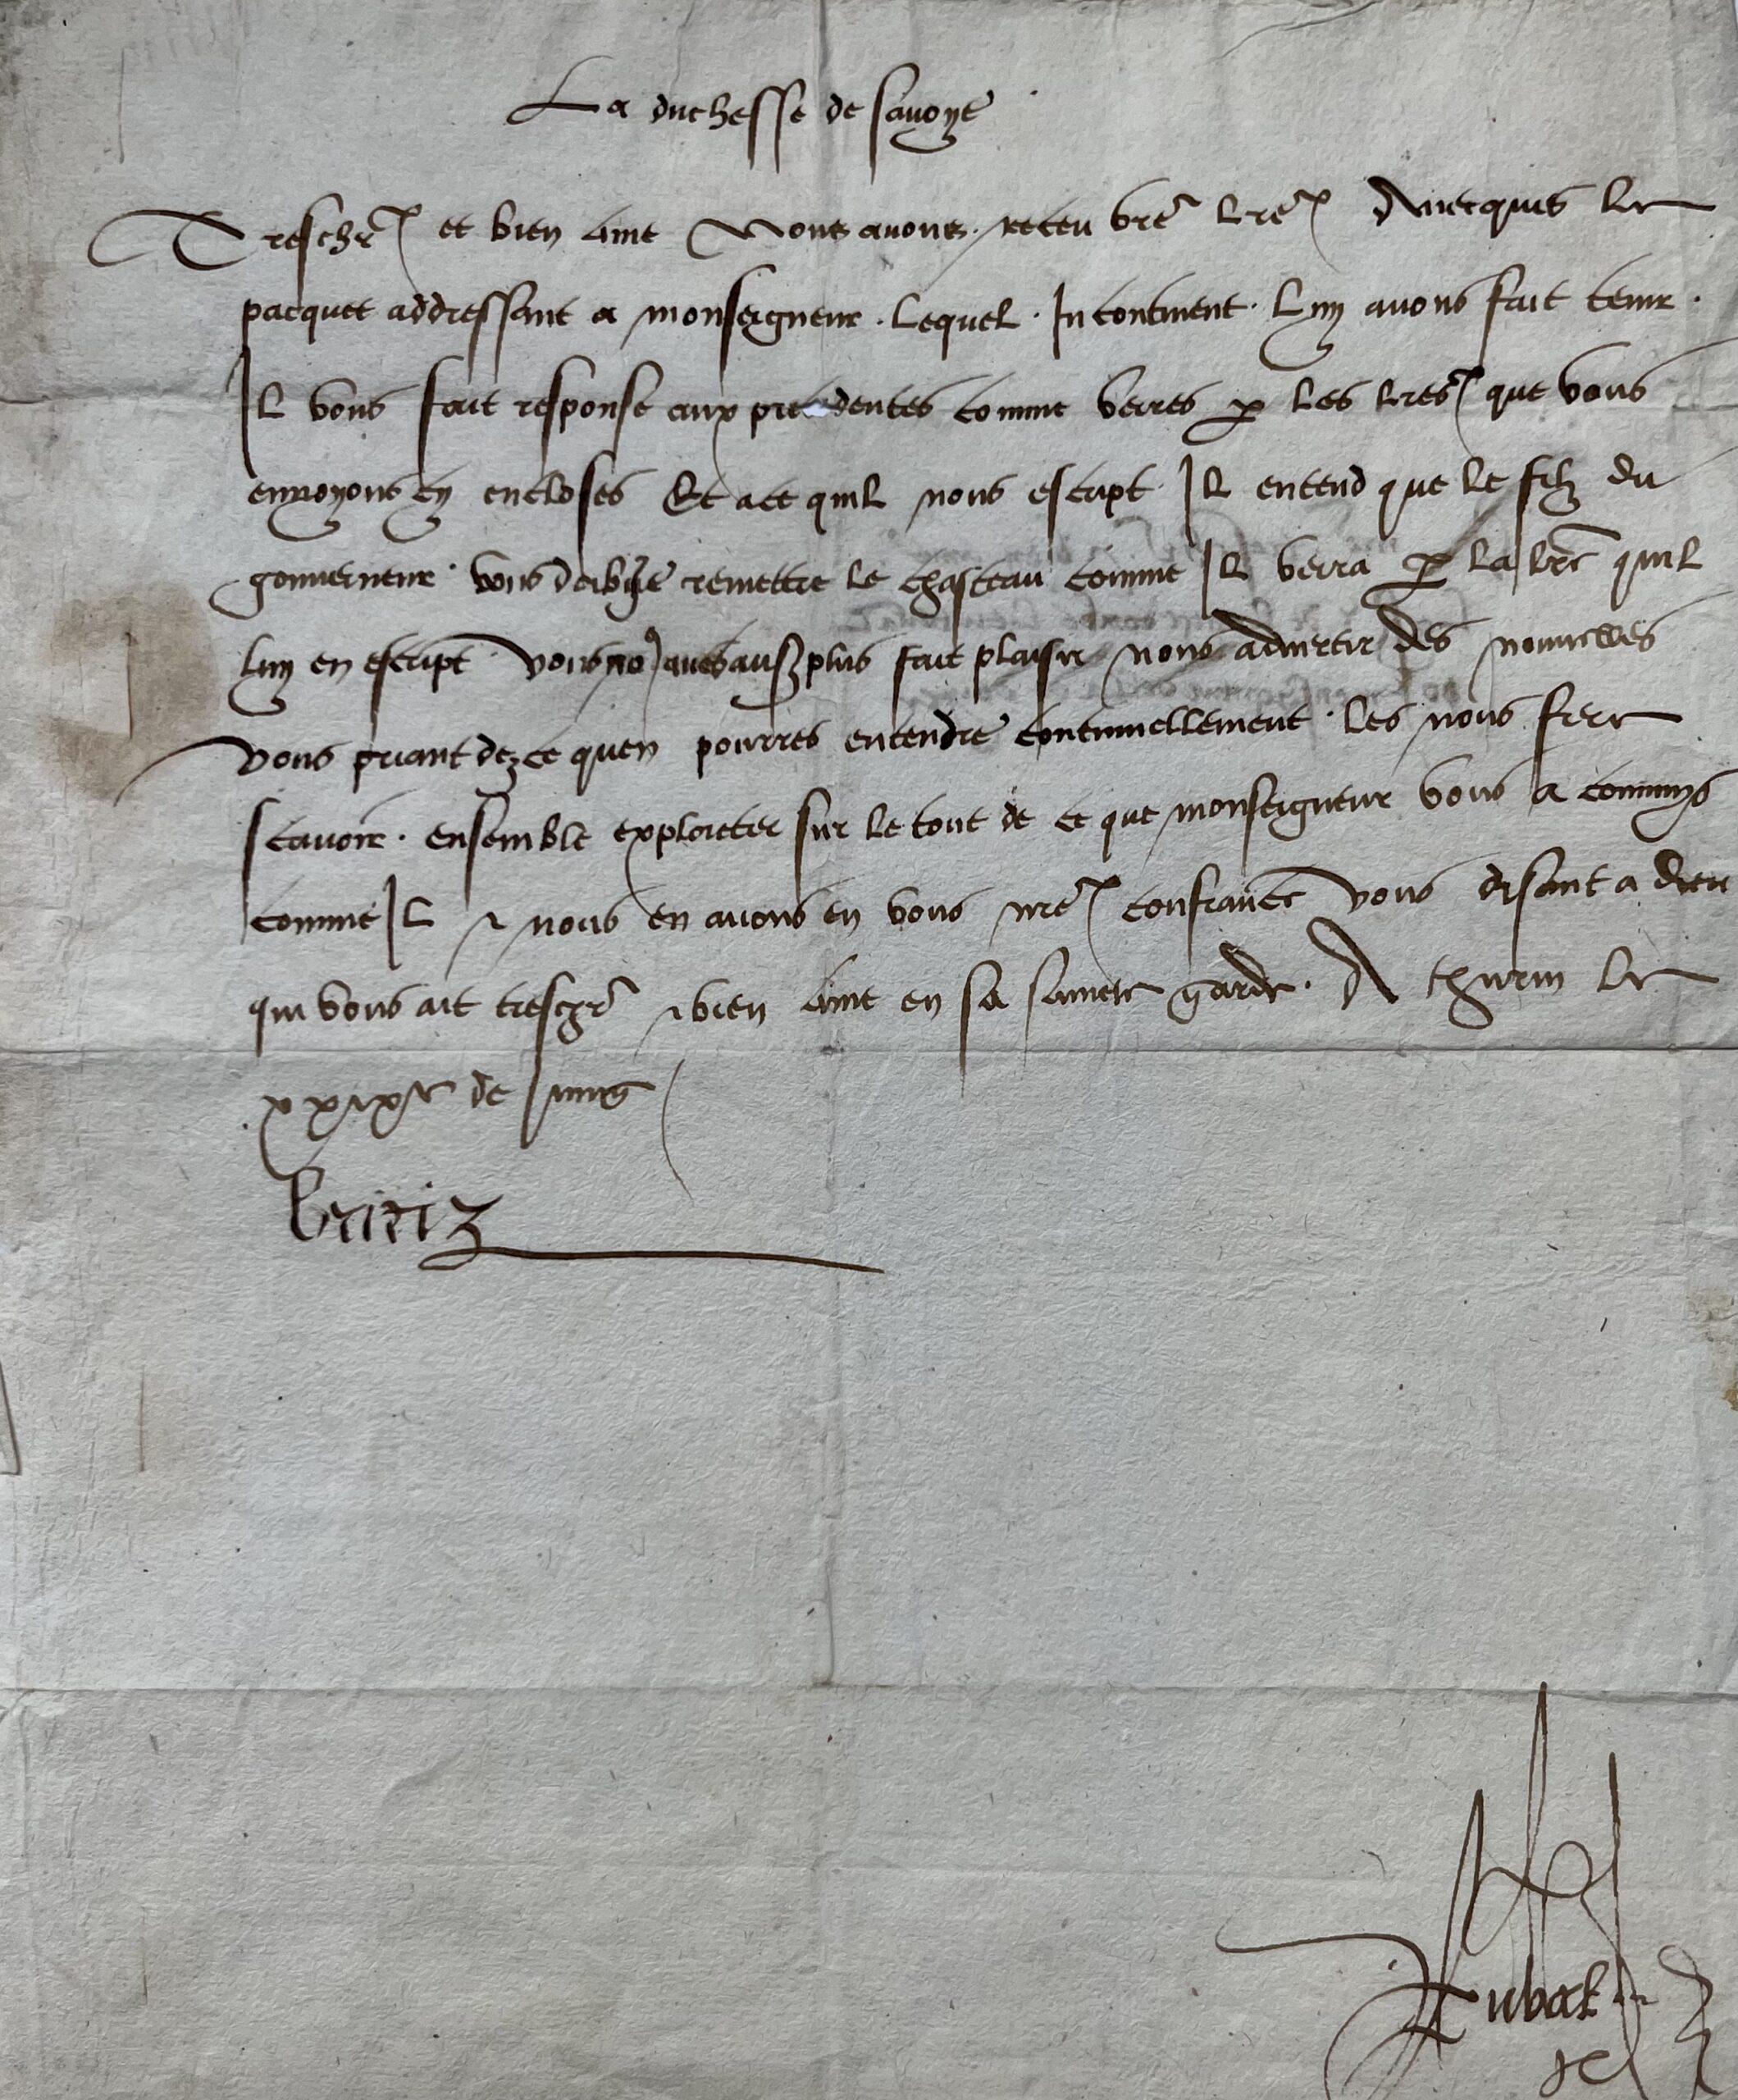 La duchesse de savoye
Treschr et bien ame Nous avons receu vre lre Avecques le
pacquet addressant a monseigneur. Lequel. Incontinent. Luy avons fait tenir.
Il vous fait response aux precedentes comme verres p les lres que vous
envoyons cy encloses Et ace quil nous escript Il entend que le filz du
gouverneur. vous doibve remettre le chasteau comme Il verra p la lre quil
luy en escript vous no aves aussy plus fait plaisir nous advertir des nouvelles
vous priant dez ce quen pourres entendre continuellement. les nous fere
scavoir. ensemble exploicter sur le tout de ce que monseigneur vous a commys
comme Il & nous en avons en vous nre confiance vous disant a dieu
qui vous ait treschr & bien ame en sa saincte garde. A thurin le
xxixe de Juing
beatriz